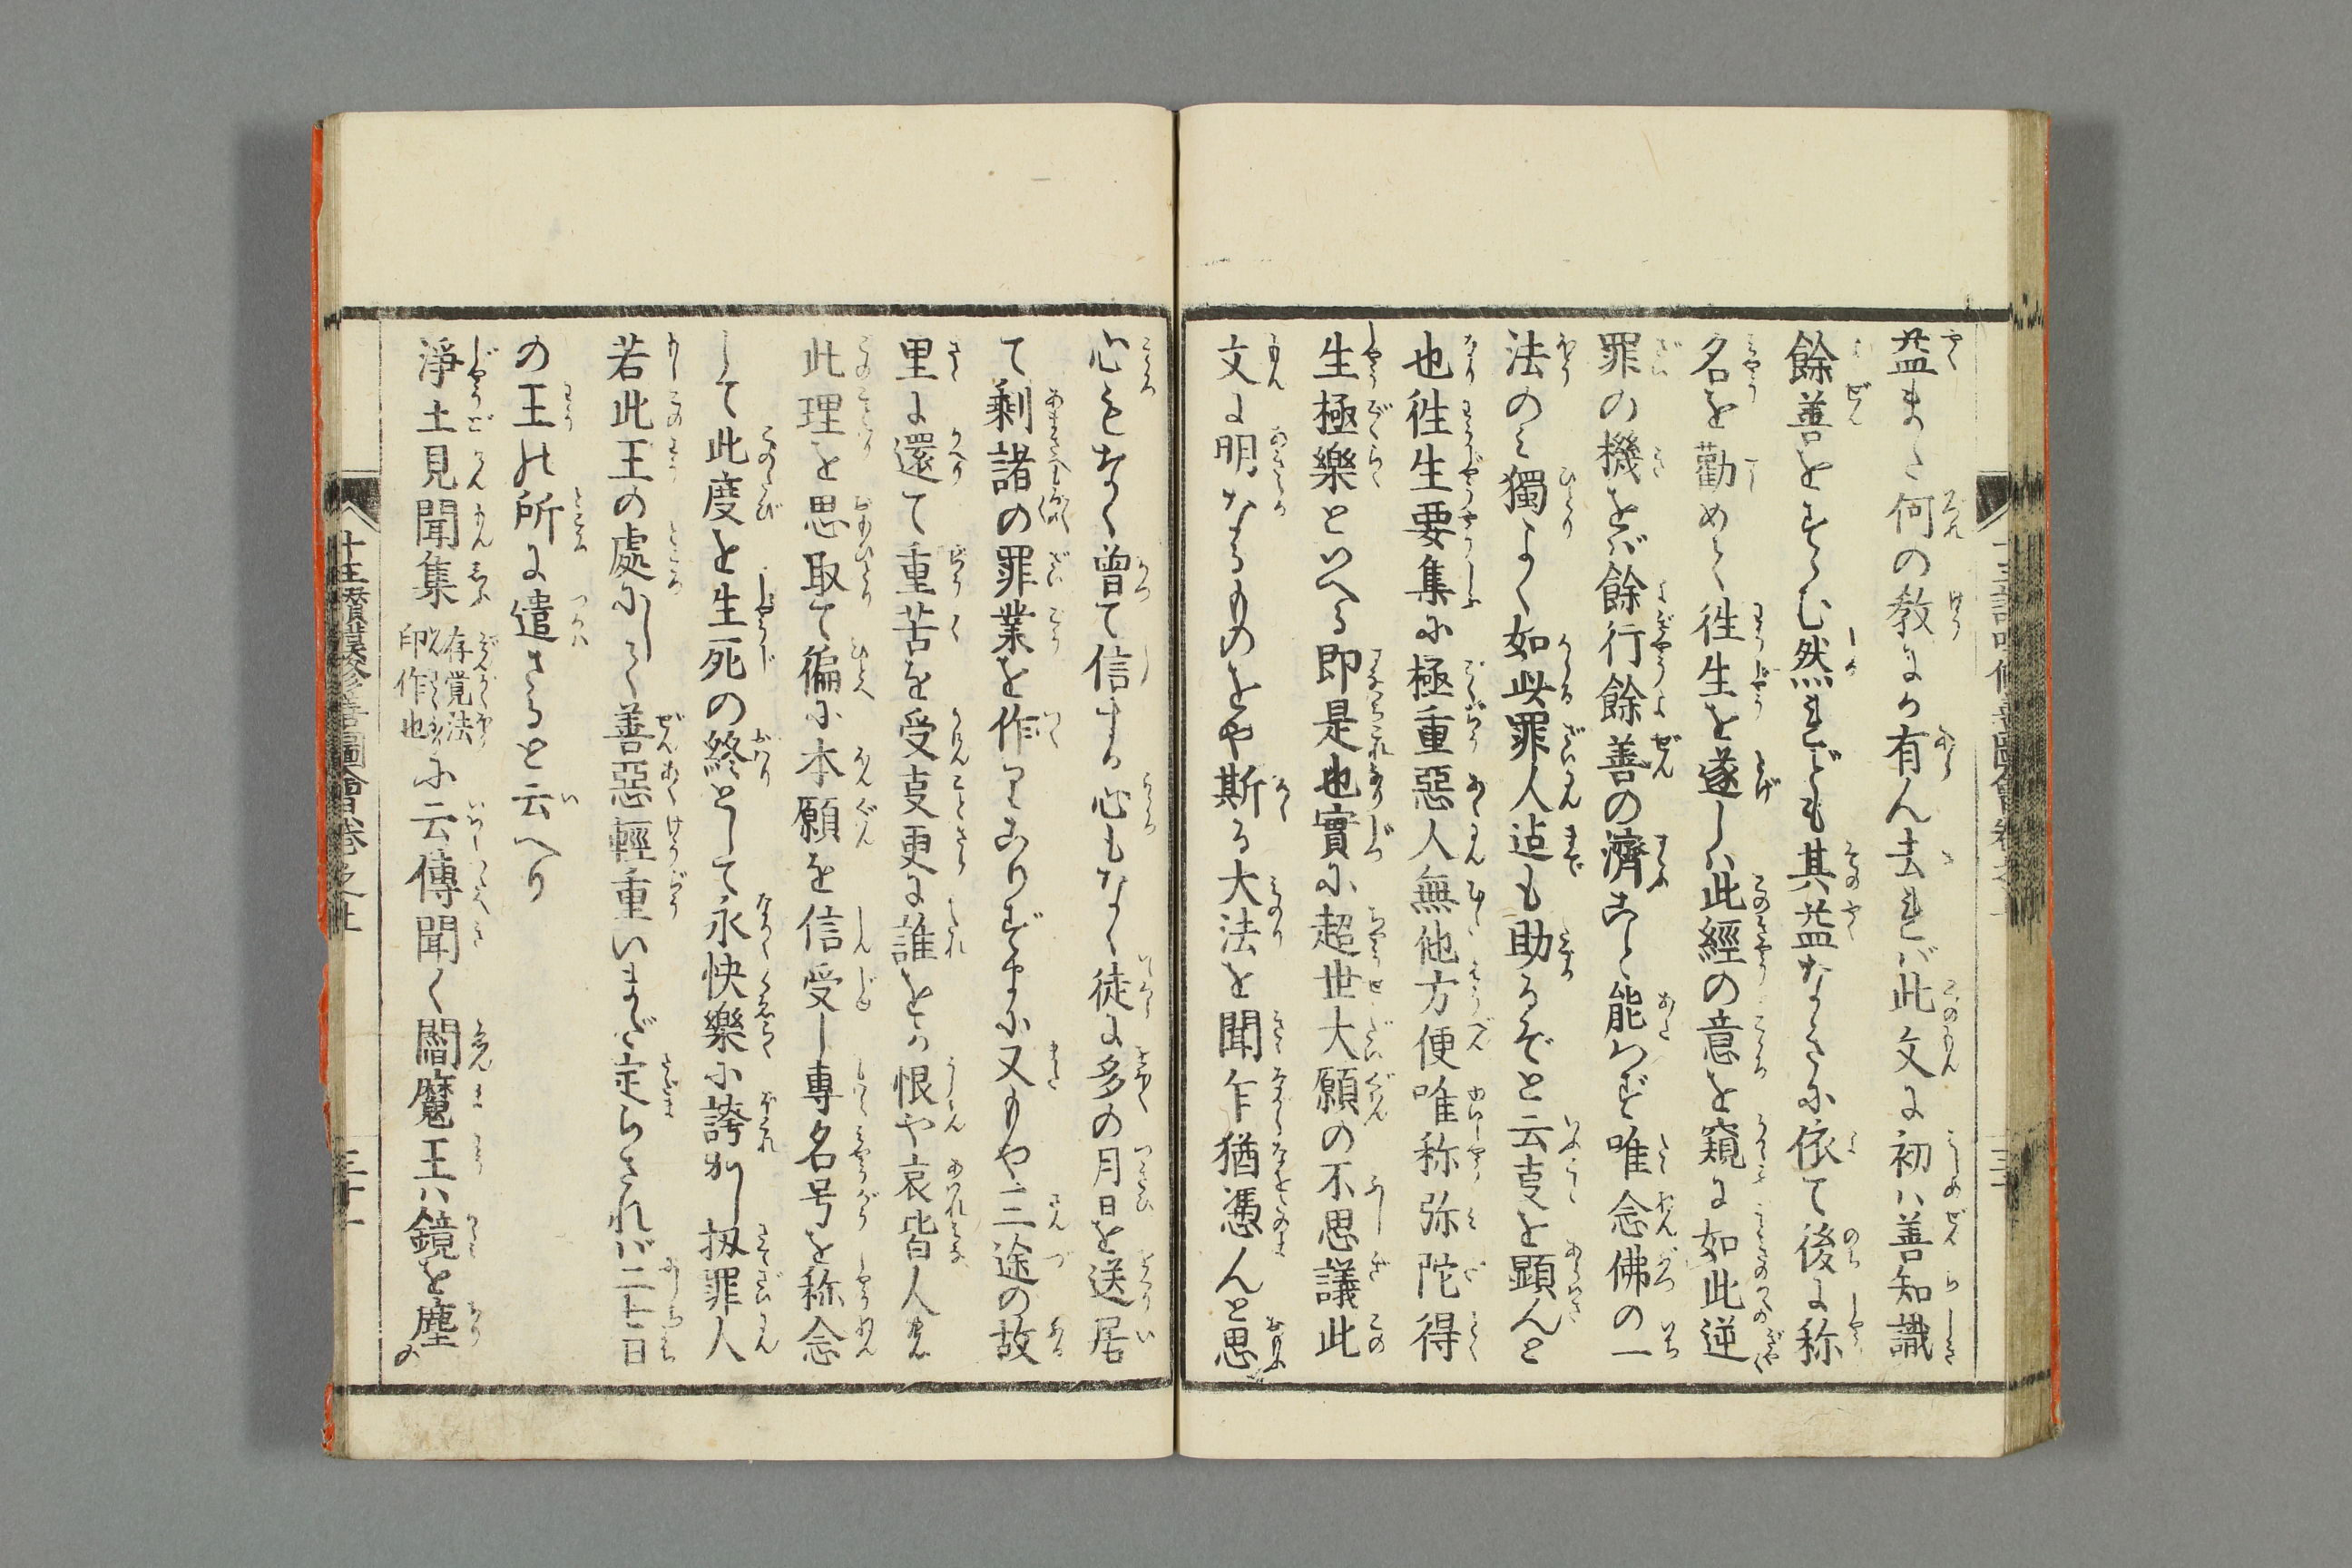 益また何の教にか有ん去れば此文に初は善知識
餘善をすゝむ然れども其益なきに依て後に称
名を勸めて徃生を遂しは此經の意を窺に如此逆
罪の機をば餘行餘善の濟こと能はず唯念佛の一
法のみ獨よく如此罪人迠も助るぞと云㕝を顕んと
也徃生要集に極重惡人無他方便唯称弥陀得
生極樂といへる即是也實に超世大願の不思議此
文に明なるものをや斯る大法を聞乍猶憑んと思
心もなく曾て信ずる心もなく徒に多の月日を送居
て剩諸の罪業を作てこりずまに又もや三途の故
里に還て重苦を受㕝更に誰をか恨や哀皆人
此理を思取て徧に本願を信受し專名号を称念
して此度を生死の終として永快樂に誇かし扨罪人
若此王の處にして善惡輕重いまだ定らされば二七日
の王の所に遣さると云へり
淨土見聞集存覚法印作也に云傳聞く閻魔王は鏡を塵の
十王讃嘆修善圖會巻之上
三十一